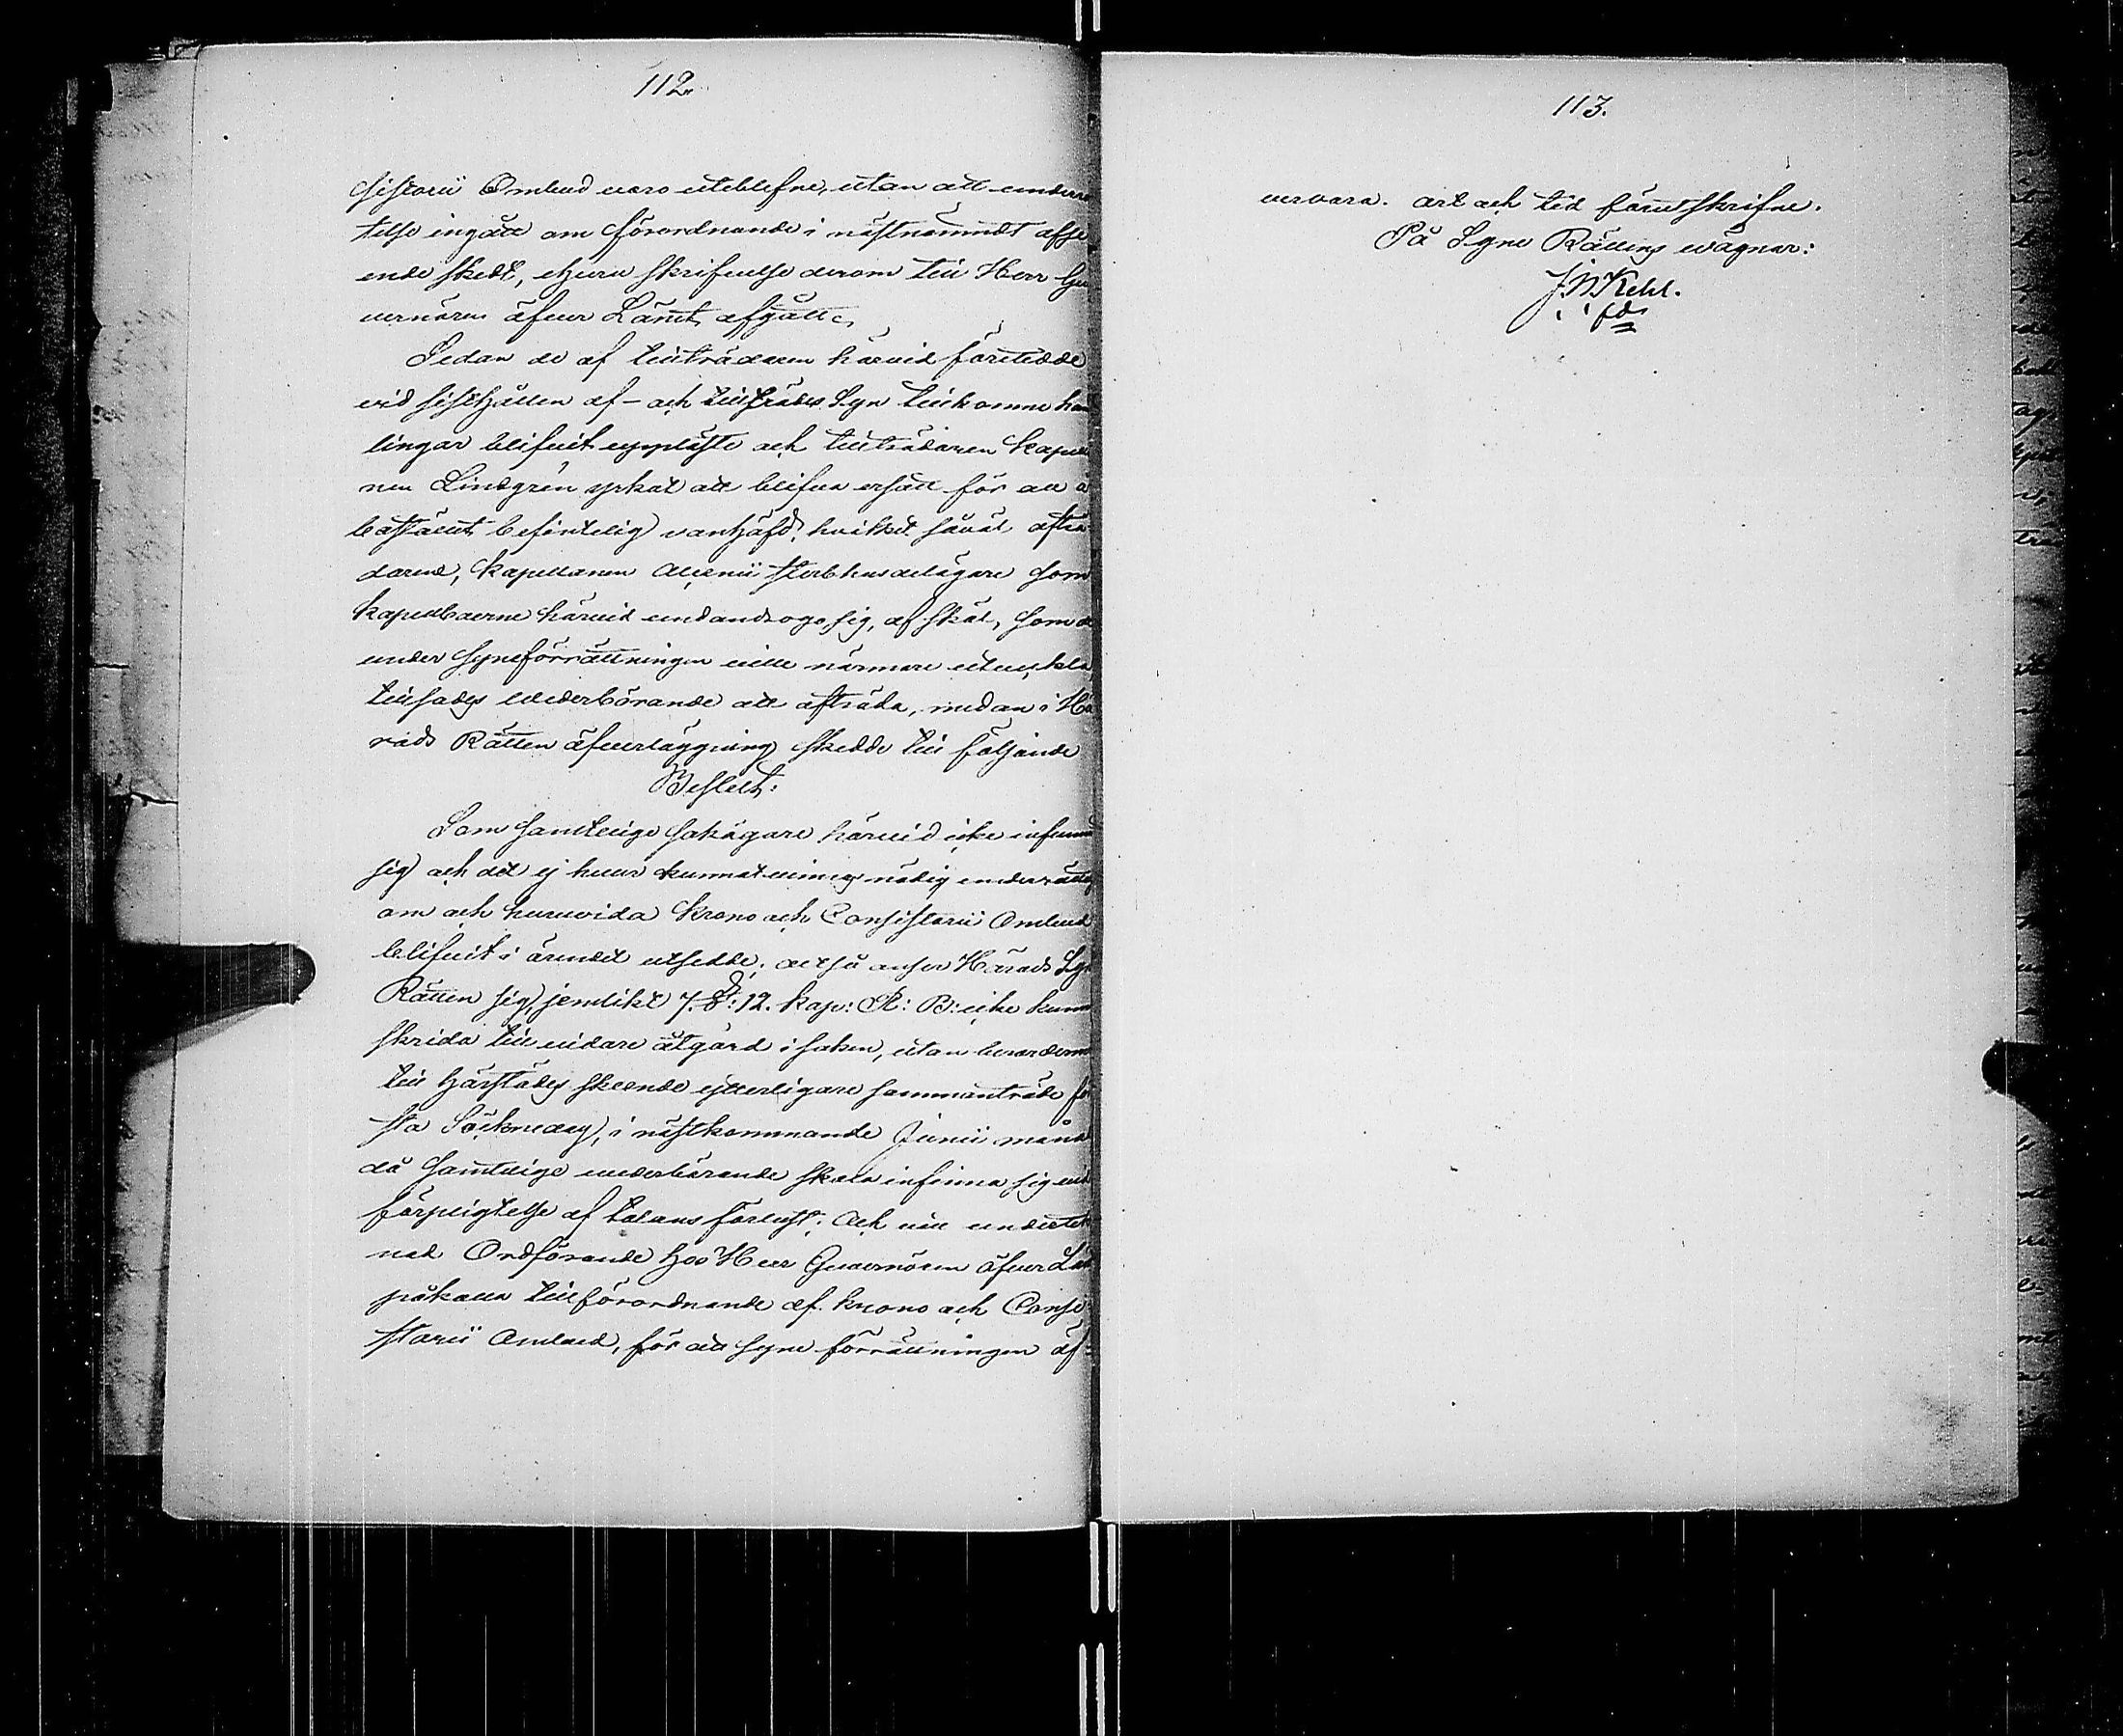 112.
sistorii Ombud voro uteblefne, utan att underrä
telse ingått om förordnande i nästnämndt afse
ende skedt, ehuru skrifvelse derom till Herr Gu
vernören öfver Länet afgått.
Sedan de af tillträdaren härvid företedde
vid sisthållen af- och tillträdes Syn tillkomne han
lingar blifvit uppläste och tillträdaren Kapella
nen Lindgrén yrkat att blifva ersatt för all å
bostället befintelig vanhäfd, hvilket såväl afträ
darens, Kapellanen Alcenii sterbhusdelägare som
kapellboerne härvid undandrogo sig, af skäl, som de
under syneförrättningen ville närmare utveckla,
tillsades vederbörande att afträda, medan i Hä
rads Rätten öfverläggning skedde till följande
Beslut:
Som samtelige sakägare härvid icke infunnit
sig och det ej heller kunnat vinnas nödig underrättelse
om och huruvida Krono och Consistorii Ombud
blifvit i ärendet utsedde; altså anser Härads Syne
Rätten sig, jemlikt 7. §: 12. Kap: R: B: icke kunna
skrida till vidare åtgärd i saken, utan
till härstädes skeende ytterligare sammanträde för
sta Söcknedag i nästkommande Junii månad
då samtelige vederbörande skola infinna sig vid
förpligtelse af talans förlust; och vill underteck
nad Ordförande hos Herr Guvernören öfver Länet
påkalla till förordnande af Krono och Consi
storii Ombud, för att syne förrättningen öf-
113.
vervara. Ort och tid förutskrifne.
På Syne Rättens vägnar:
J. W. Kehl.